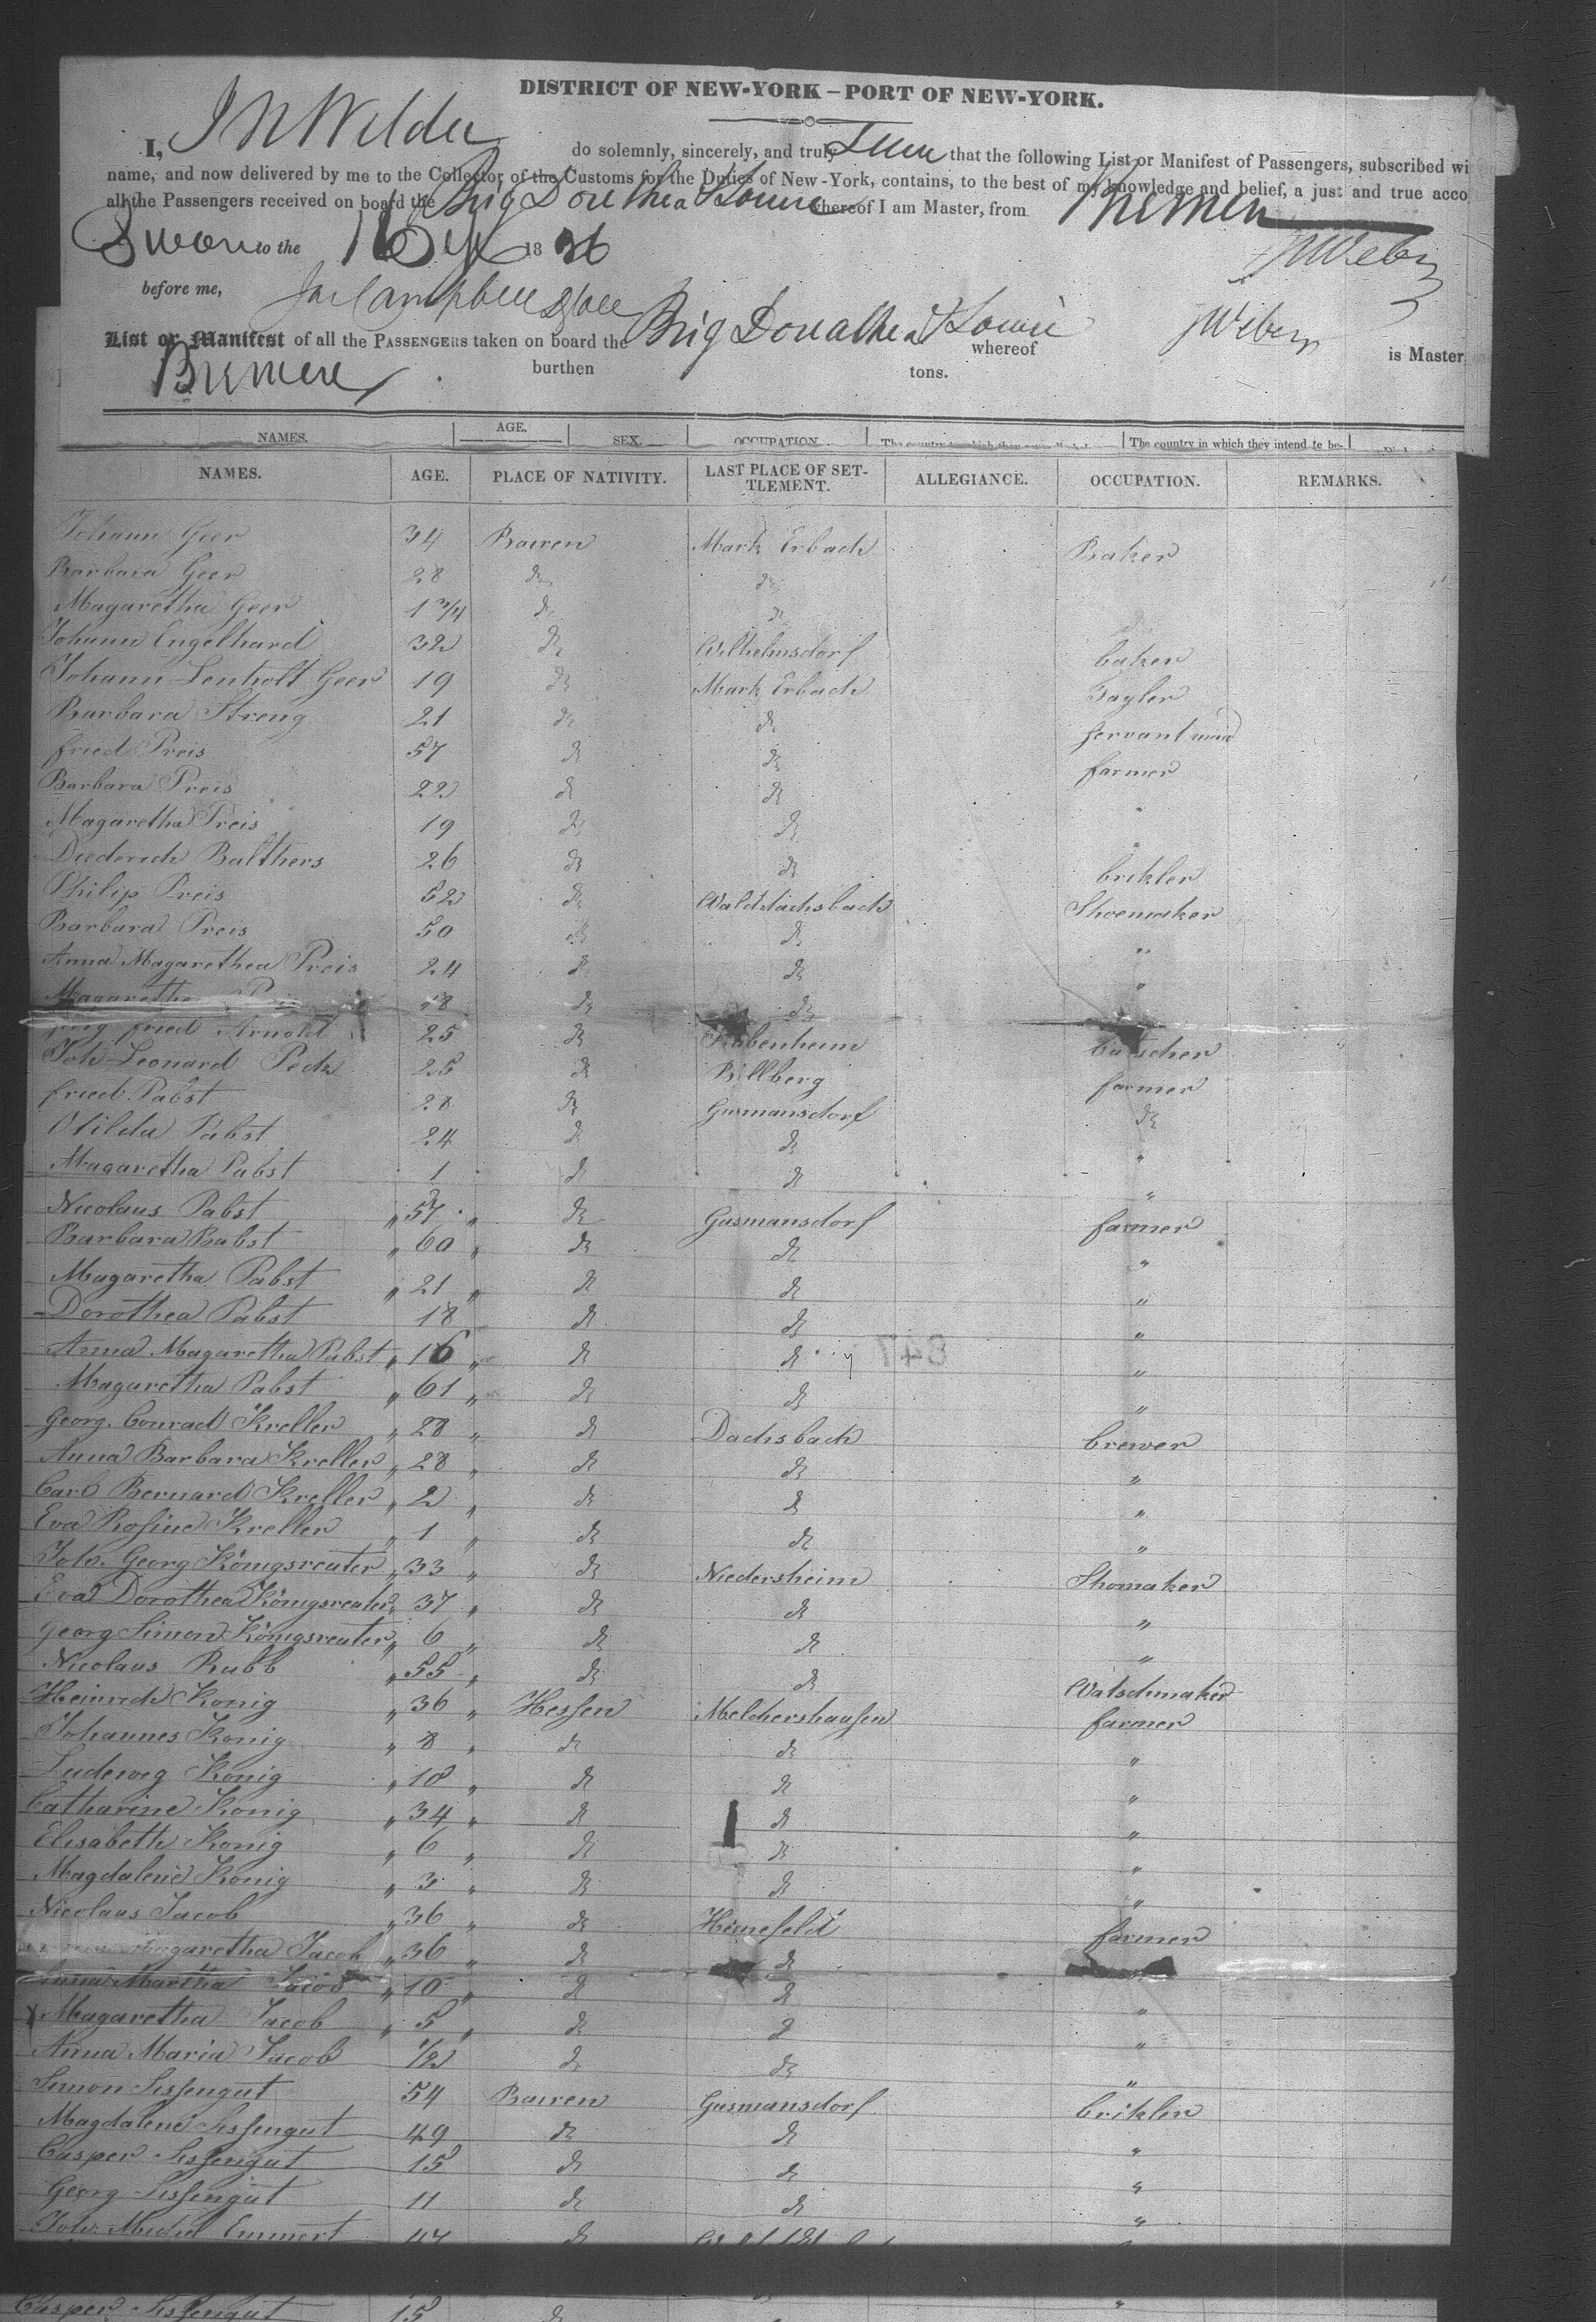 DISTRICT OF NEW-YORK – PORT OF NEW-YORK.
I, do solemnly, sincerely, and truly that the following List or Manifest of Passengers, subscribed wi
name, and now delivered by me to the Collector of the Customs for the Duties of New-York, contains, to the best of my knowledge and belief, a just and true acco
all the Passengers received on board the Brig whereof I am Master, from Bremen
to the 18
before me,
List or Manifest of all the PASSENGERS taken on board the Brig whereof is Master
burthen tons.
NAMES. AGE. SEX. OCCUPATION. The country in which they intend to be-
NAMES. AGE. PLACE OF NATIVITY. LAST PLACE OF SET-TLEMENT. ALLEGIANCE. OCCUPATION. REMARKS.
Johann Geer 34 Bairen Mark Erbach Baker
Barbara Geer 28 do do
Magaretha Geer 1 3/4 do do
Johann Engelhard 32 do Wilhelmsdorf baker
Johann Lenholt Geer 19 do Mark Erbach Tayler
Barbara Streng 21 do do servant maid
fried Preis 57 do do farmer
Barbara Preis 22 do do "
Magaretha Preis 19 do do "
Diederich Balthers 26 do do brikler
Philip Preis 52 do Walddachsbach Shoemaker
Barbara Preis 50 do do "
Anna Magarethea Preis 24 do do "
Magaretha do do
fried Arnold 25 do
Joh Leonard Peck 25 do Billberg farmer
fried Pabst 28 do Gusmansdorf do
Otilda Pabst 24 do do "
Magaretha Pabst 1 do do "
Nicolaus Pabst " 57 " do Gusmansdorf farmer
Barbara Babst " 60 " do do "
Magaretha Pabst " 21 " do do "
Dorothea Pabst 18 do do "
Anna Magaretha Pabst " 16 " do do "
Magaretha Pabst " 61 " do do "
Georg. Conrad Kreller " 28 " do Dachsbach brewer
Anna Barbara Kreller " 28 " do do "
Carl Bernard Kreller " 2 " do do "
Eva Rosine Kreller " 1 " do do "
Joh. Georg Königsreuter " 33 " do Niedersheim Shomaker
Eva Dorothea Königsreuter " 37 " do do "
Georg Simon Königsreuter " 6 " do do "
Nicolaus Rubb " 55 " do do Watschmaker
Heinrich Konig " 36 " Hessen Melchershausen farmer
Johannes Konig " 8 " do do "
Ludeweg Konig " 10 " do do "
Catharine Konig " 34 " do do "
Elisabeth Konig " 6 " do do "
Magdalene Konig " 3 " do do "
Nicolaus Jacob " 36 " do Heimefeld farmer
Magaretha Jacob " 36 " do do
Anna Martha Jacob " 10 " do do "
Magaretha Jacob " 5 " do do "
Anna Maria Jacob 1/2 do do "
Simon Sissengut 54 Bairen Gusmansdorf brikler
Magdalene Sissengut 49 do do "
Casper Sissengut 15 do do "
Georg Sissengut 11 do do "
Joh. Michel Emmert 47 do
Casper Sissengut 15 do